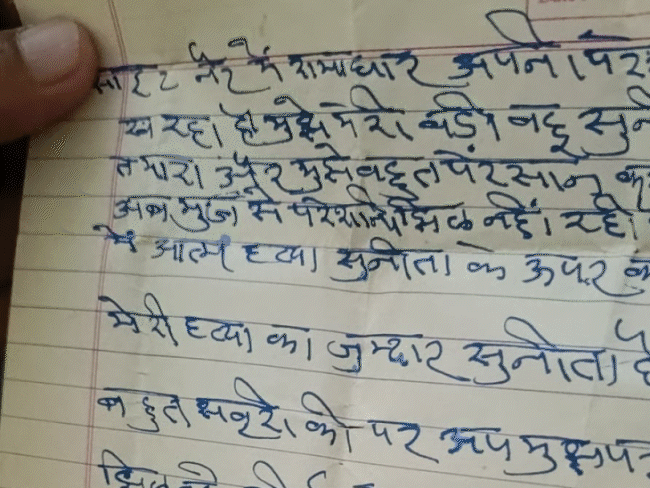 साइट नेर में रामाधार अपने पर
रव रहा हो मुझे मेरी बड़ी बहू सुनी
त मारा और मुझे बहुत पेरसान क
अब मुज से परेशानी झिल नहीं रही
में आत्म हत्या सुनीता के ऊपर क
मेरी हत्या का जुम्दार सुनीता है
बहुत सबूरी की पर अप मुझ पर
झिल